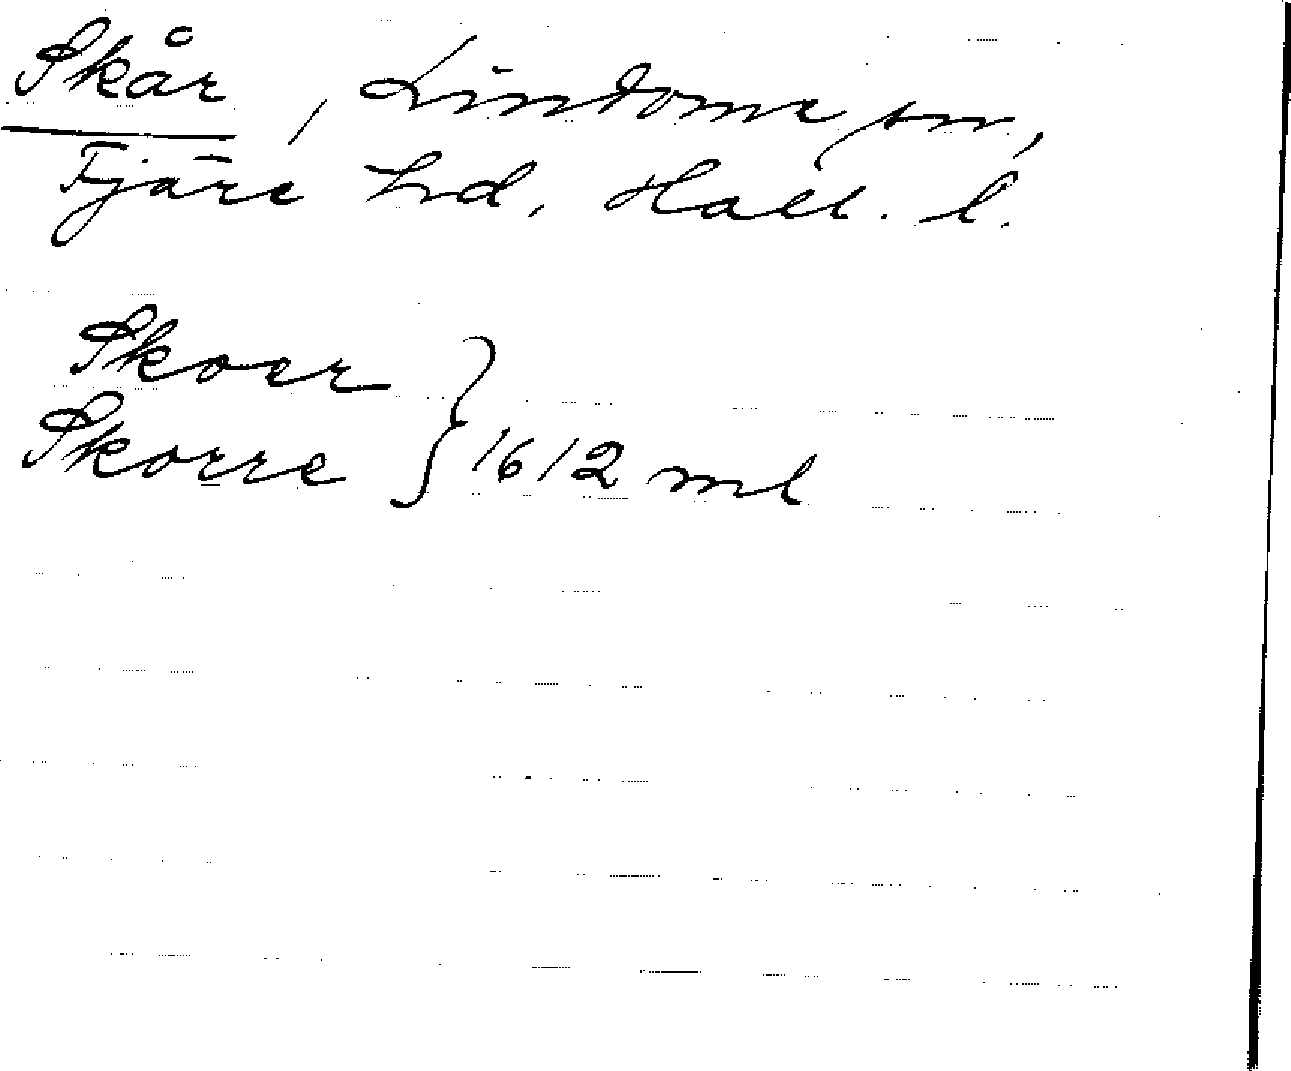 Skår, Lindome sn,
Fjäre hd, Hall. l.
Skoer
Skorre } 1612 ml